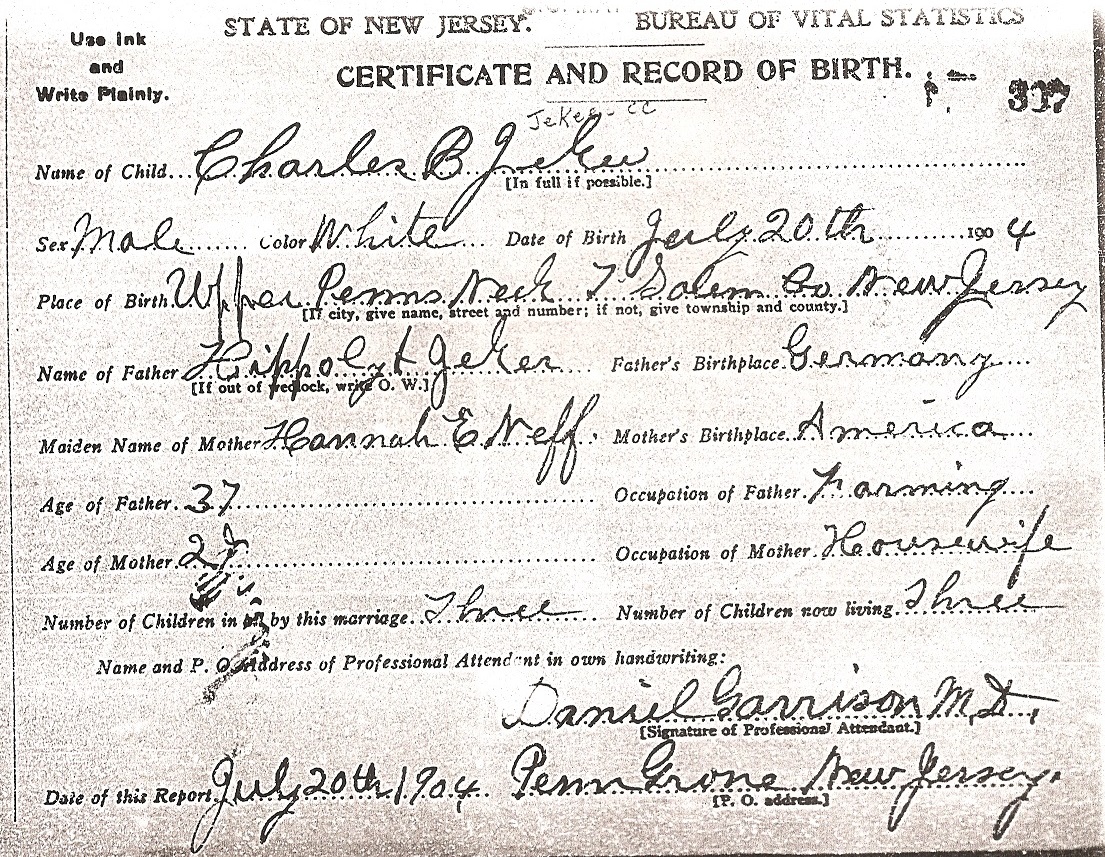 STATE OF NEW JERSEY. BUREAU OF VITAL STATISTICS
Use Ink
and
Write Plainly.
CERTIFICATE AND RECORD OF BIRTH.
317
Name of Child Charles B Jeker
[In full if possible.]
Sex Male Color White Date of Birth July 20th 1904
Place of Birth Upper Penns Neck T Salem Co New Jersey
[If city, give name, street and number; if not, give township and county.]
Name of Father Hippolyt Jeker Father's Birthplace Germany
[If out of wedlock, write O. W.]
Maiden Name of Mother Hannah E Neff. Mother's Birthplace America
Age of Father 37 Occupation of Father Farming
Age of Mother Occupation of Mother Housewife
Number of Children in all by this marriage Three Number of Children now living Three
Name and P. O. Address of Professional Attendant in own handwriting:
Daniel Garrison M.D.,
[Signature of Professional Attendant.]
Date of this Report July 20th 1904 Penn Grove New Jersey.
[P. O. address.]